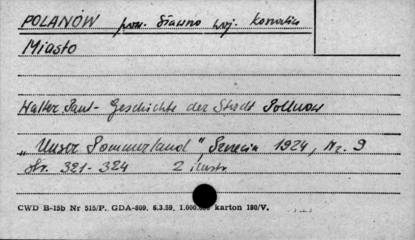 POLANÓW pow. Sławno woj. Koszalin
Miasto
Walter Paul - Geschichte der Stadt Pollnow
„Unser Pommerland", Szczecin 1924, Nr. 9
str. 321-324 2 ilustr.
CWD B-15b Nr 515/P. GDA-809. 6.3.59. 1.000.000 karton 180/V.